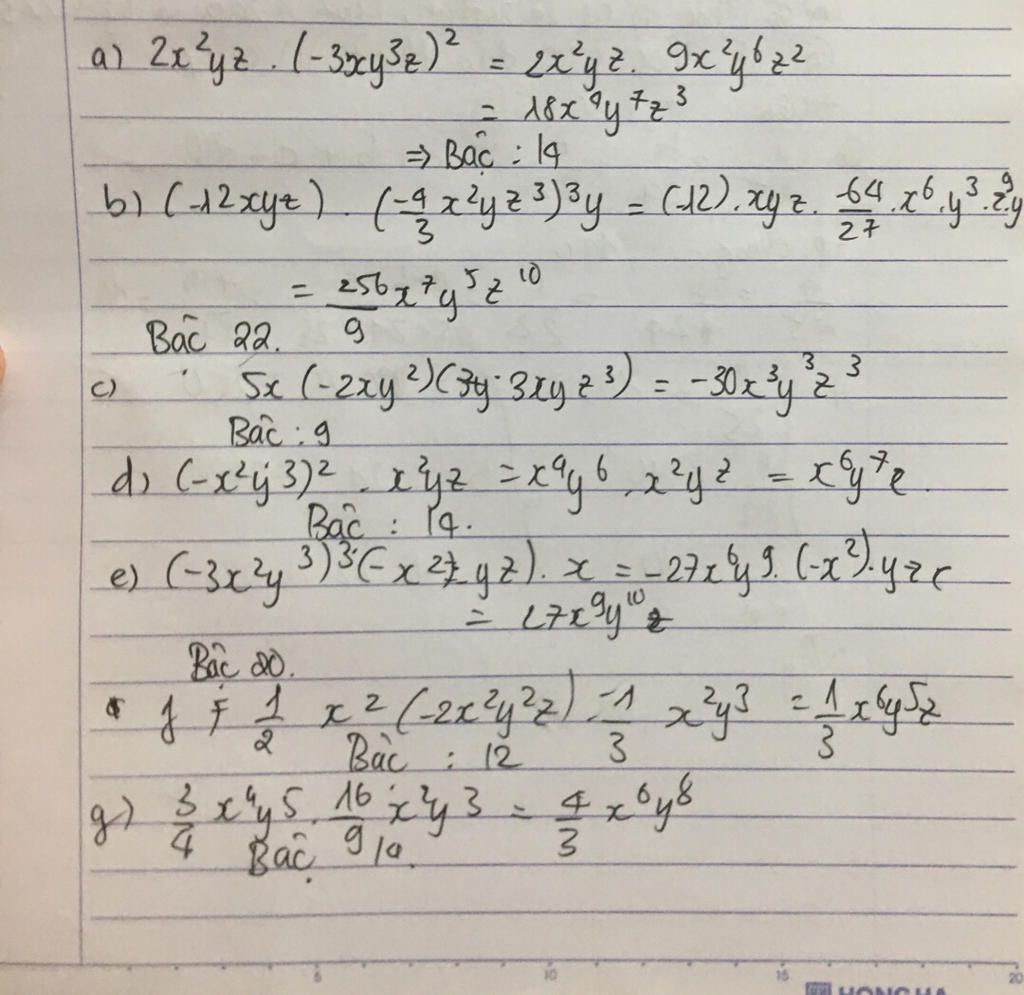 a) 2x²yz . (-3xy³z)² = 2x²yz . 9x²y⁶z²
= 18x⁴y⁷z³
⇒ Bậc : 14
b) (-12xyz) . (-4/3 x²yz³)³y = (-12).xyz. -64/27 .x⁶.y³.z⁹.y
= 256/9 x⁷y⁵z¹⁰
Bậc 22.
c) 5x(-2xy²)(3xyz³) = -30x³y³z³
Bậc : 9
d) (-x²y³)² . x²yz = x⁴y⁶ . x²yz = x⁶y⁷z.
Bậc : 14.
e) (-3x²y³)³.(-x²yz). x = -27x⁶y⁹. (-x²).yz
= 27x⁹y¹⁰z
Bậc 20.
f 1/2 x² (-2x²y²z) . -1/3 x²y³ = 1/3 x⁶y⁵z
Bậc : 12
g) 3/4 x⁴y⁵ . 16/9 x²y³ = 4/3 x⁶y⁸
Bậc 14.
5 10 15 20
HONG HA